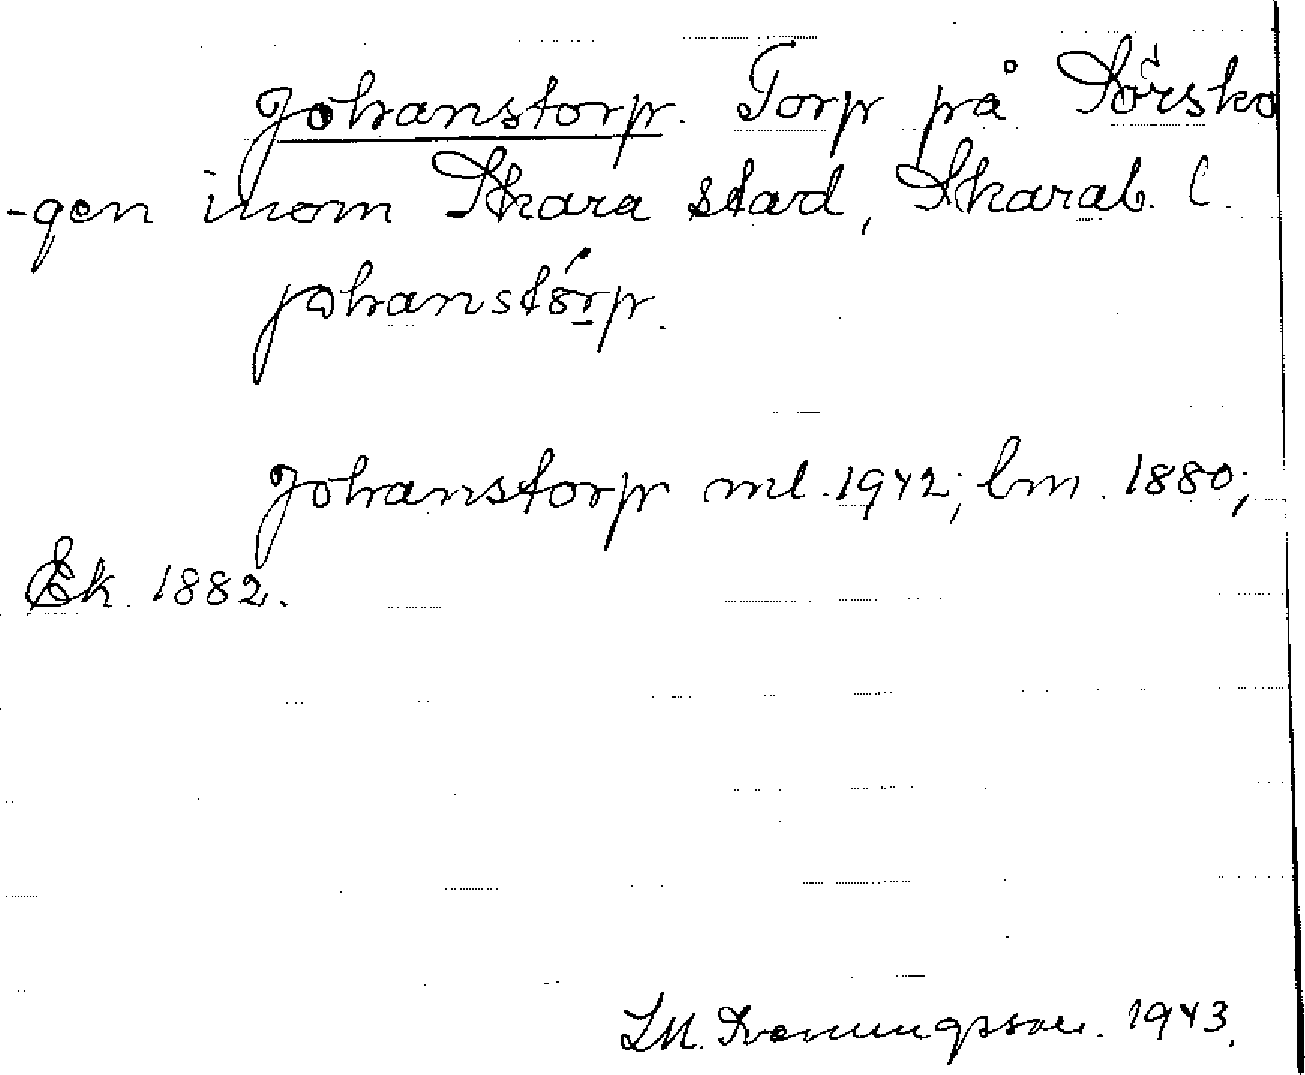 Johanstorp. Torp på Sörsko
-gen inom Skara stad, Skarab. l.
johanstórp.
Johanstorp ml. 1942; lm. 1880;
Ek. 1882.
1943.